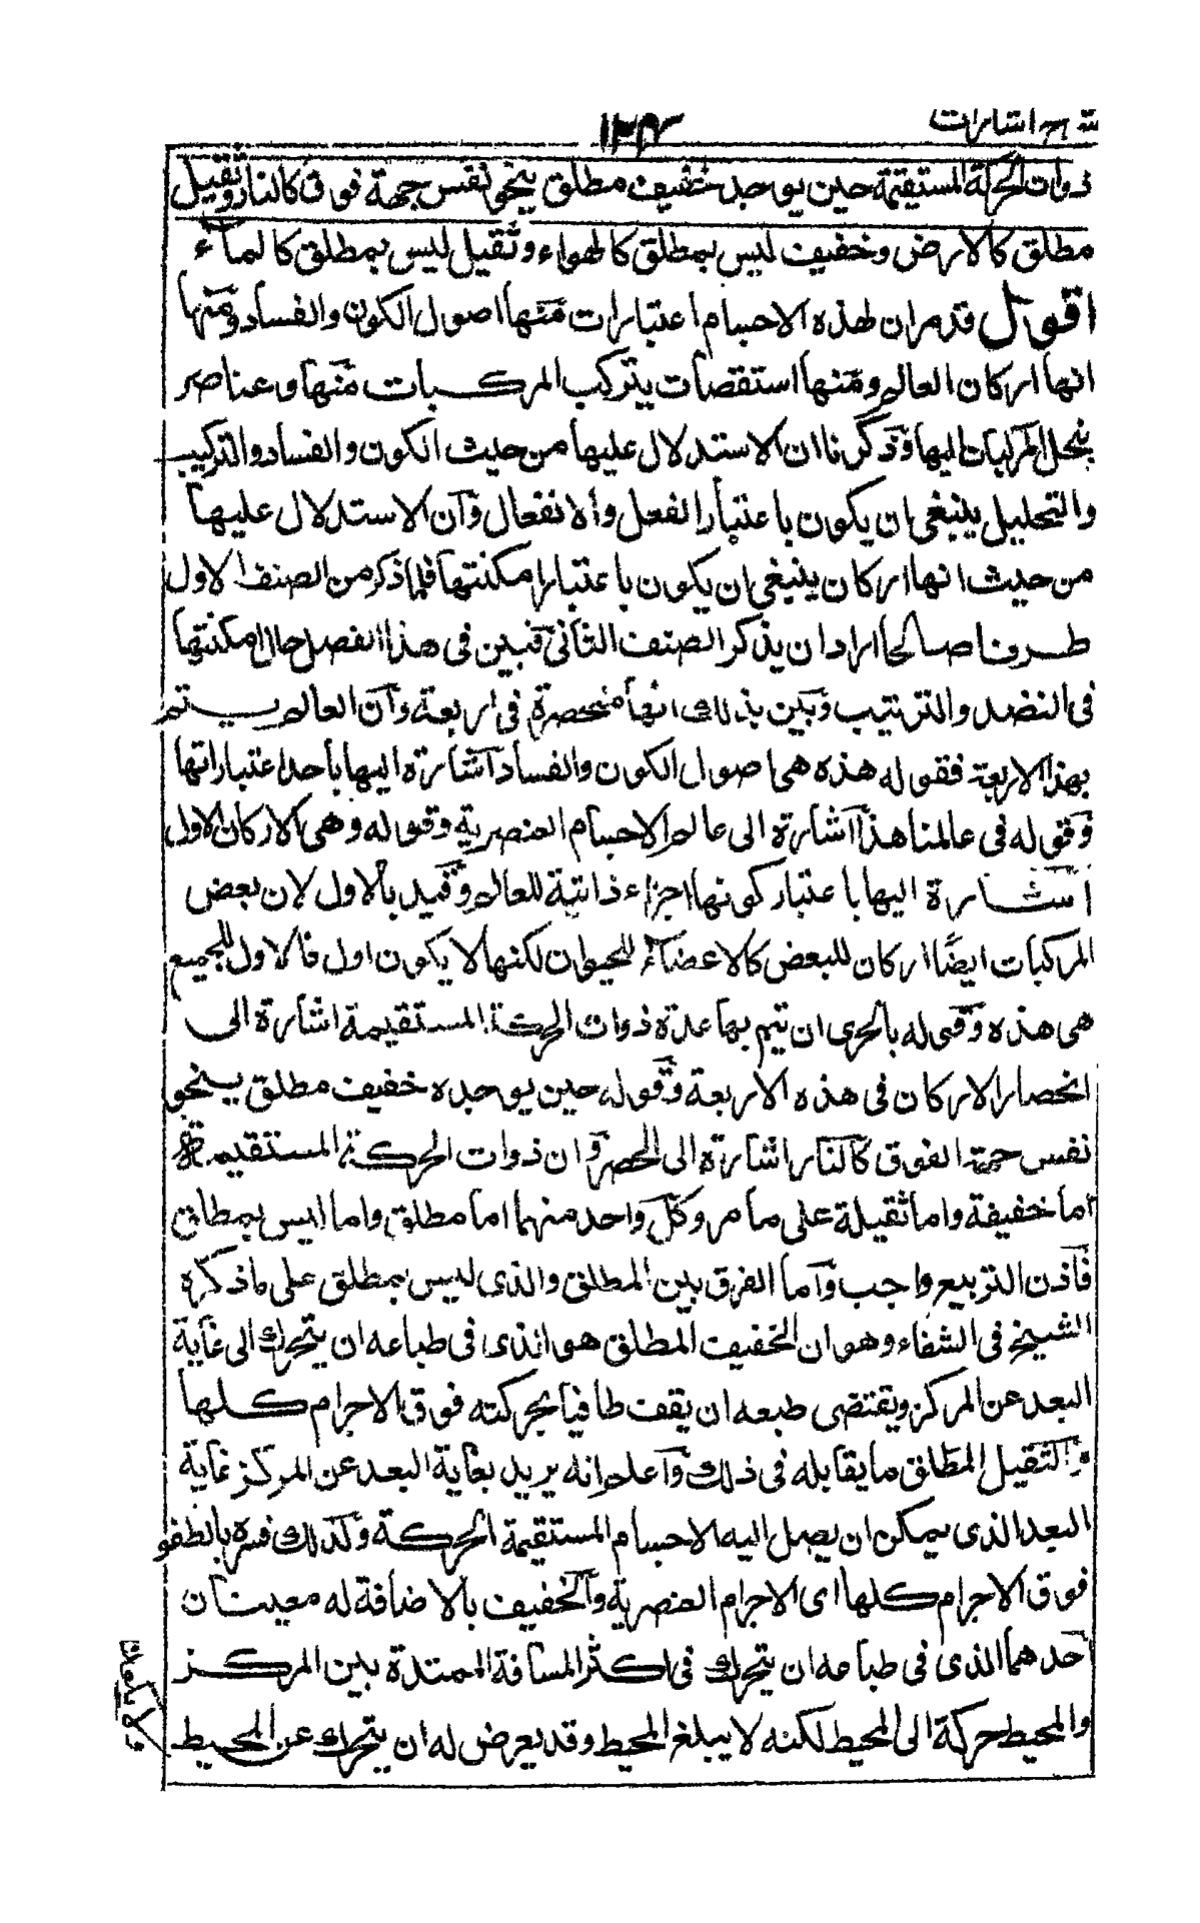 شرح اشارات
١٣٤
ذوات الحركة المستقيمة حين يوجد خفيف مطلق ينحو نفس جهة فوق كالنار وثقيل
مطلق كالارض وخفيف ليس بمطلق كالهواء وثقيل ليس بمطلق كالماء
اقول قد مر ان لهذه الاجسام اعتبارات منها اصول الكون والفساد ومنها
انها اركان العالم ومنها استقصات يتركب المركبات منها وعناصر
ينحل المركبات اليها وقد ذكرنا ان الاستدلال عليها من حيث الكون والفساد والتركيب
والتحليل ينبغى ان يكون باعتبار الفعل والانفعال وان الاستدلال عليها
من حيث انها اركان ينبغى ان يكون باعتبار امكنتها فلما ذكر من الصنف الاول
طرفا صالحا اراد ان يذكر الصنف الثانى فبين فى هذا الفصل حال امكنتها
فى النضد والترتيب وبين بذلك انها منحصرة فى اربعة وان العالم يستتم
بهذا الاربعة فقوله هذه هى اصول الكون والفساد اشارة اليها باحد اعتباراتها
وقوله فى عالمنا هذا اشارة الى عالم الاجسام العنصرية وقوله وهى الاركان الاول
اشارة اليها باعتبار كونها اجزاء ذاتية للعالم وقيد بالاول لان بعض
المركبات ايضًا اركان للبعض كالاعضاء للحيوان لكنها لا يكون اول فالاول للجميع
هى هذه وقوله بالحرى ان تتم بها عدة ذوات الحركة المستقيمة اشارة الى
انحصار الاركان فى هذه الاربعة وقوله حين يوجده خفيف مطلق ينحو
نفس جهة الفوق كالنار اشارة الى الحصر وان ذوات الحركة المستقيمة
اما خفيفة واما ثقيلة على ما مر وكل واحد منهما اما مطلق واما ليس بمطلق
فاذن التربيع واجب واما الفرق بين المطلق والذى ليس بمطلق على ما ذكره
الشيخ فى الشفاء وهو ان الخفيف المطلق هو الذى فى طباعه ان يتحرك الى غاية
البعد عن المركز ويقتضى طبعه ان يقف طافيا بحركته فوق الاجرام كلها
والثقيل المطلق ما يقابله فى ذلك واعلم انه يريد بغاية البعد عن المركز غاية
البعد الذى يمكن ان يصل اليه الاجسام المستقيمة الحركة وكذلك فسره بالطفو
فوق الاجرام كلها اى الاجرام العنصرية والخفيف بالاضافة له معينان
احدهما الذى فى طباعه ان يتحرك فى اكثر المسافة الممتدة بين المركز
والمحيط حركة الى المحيط لكنه لا يبلغ المحيط وقد يعرض له ان يتحرك عن المحيط
ولا يكون